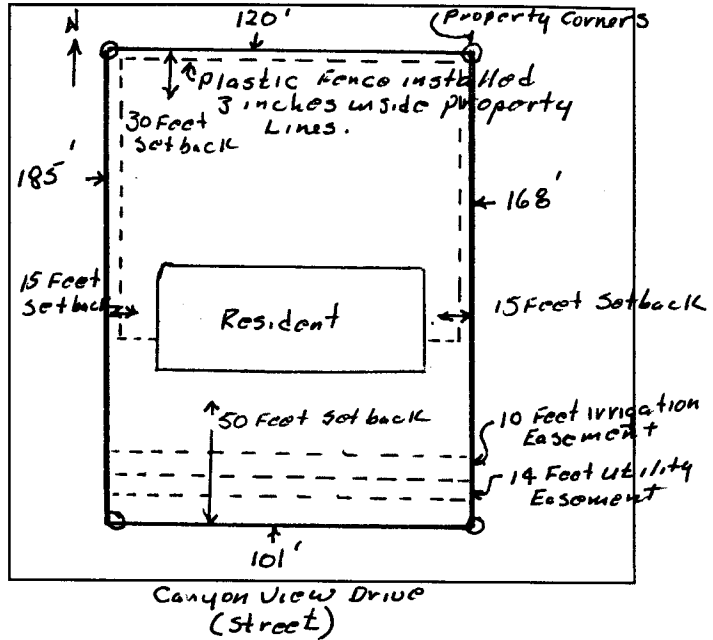 N
120'
Property Corners
Plastic Fence installed
3 inches inside property
Lines.
30 Feet
Setback
185'
168'
15 Feet
Setback
Resident
15 Feet Setback
50 Feet Setback
10 Feet irrigation
Easement
14 Feet Utility
Easement
101'
Canyon View Drive
(Street)